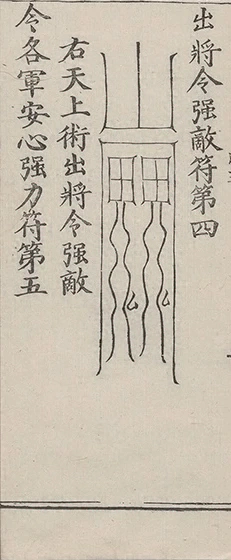 出將令强敵符第四
右天上術出將令强敵
令各軍安心强力符第五